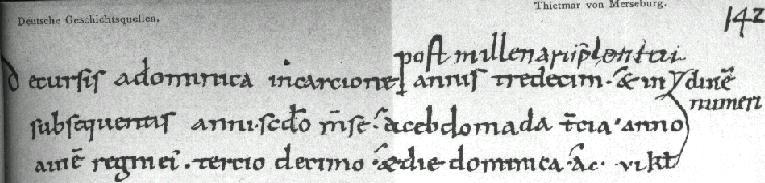 Deutsche Geschichtsquellen.
Thietmar von Merseburg.
142
post millenarii
decursis a dominica incarcione annis tredecim. & in
numeri
subsequentis anni. scdo mse. ac ebdomada tcia. anno
aut regni ei. tercio decimo & die dominica. ac. vi kl